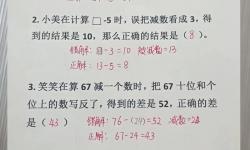 2. 小美在计算 □ -5 时，误把减数看成 3，得
到的结果是 10，那么正确的结果是（ 8 ）。
错解: 13-3=10 被减数=13
正解: 13-5=8
3. 笑笑在算 67 减一个数时，把 67 十位和个
位上的数写反了，得到的差是 52，正确的差
是（ 43 ） 错解: 76-(24)=52 减数=24
正解: 67-24=43